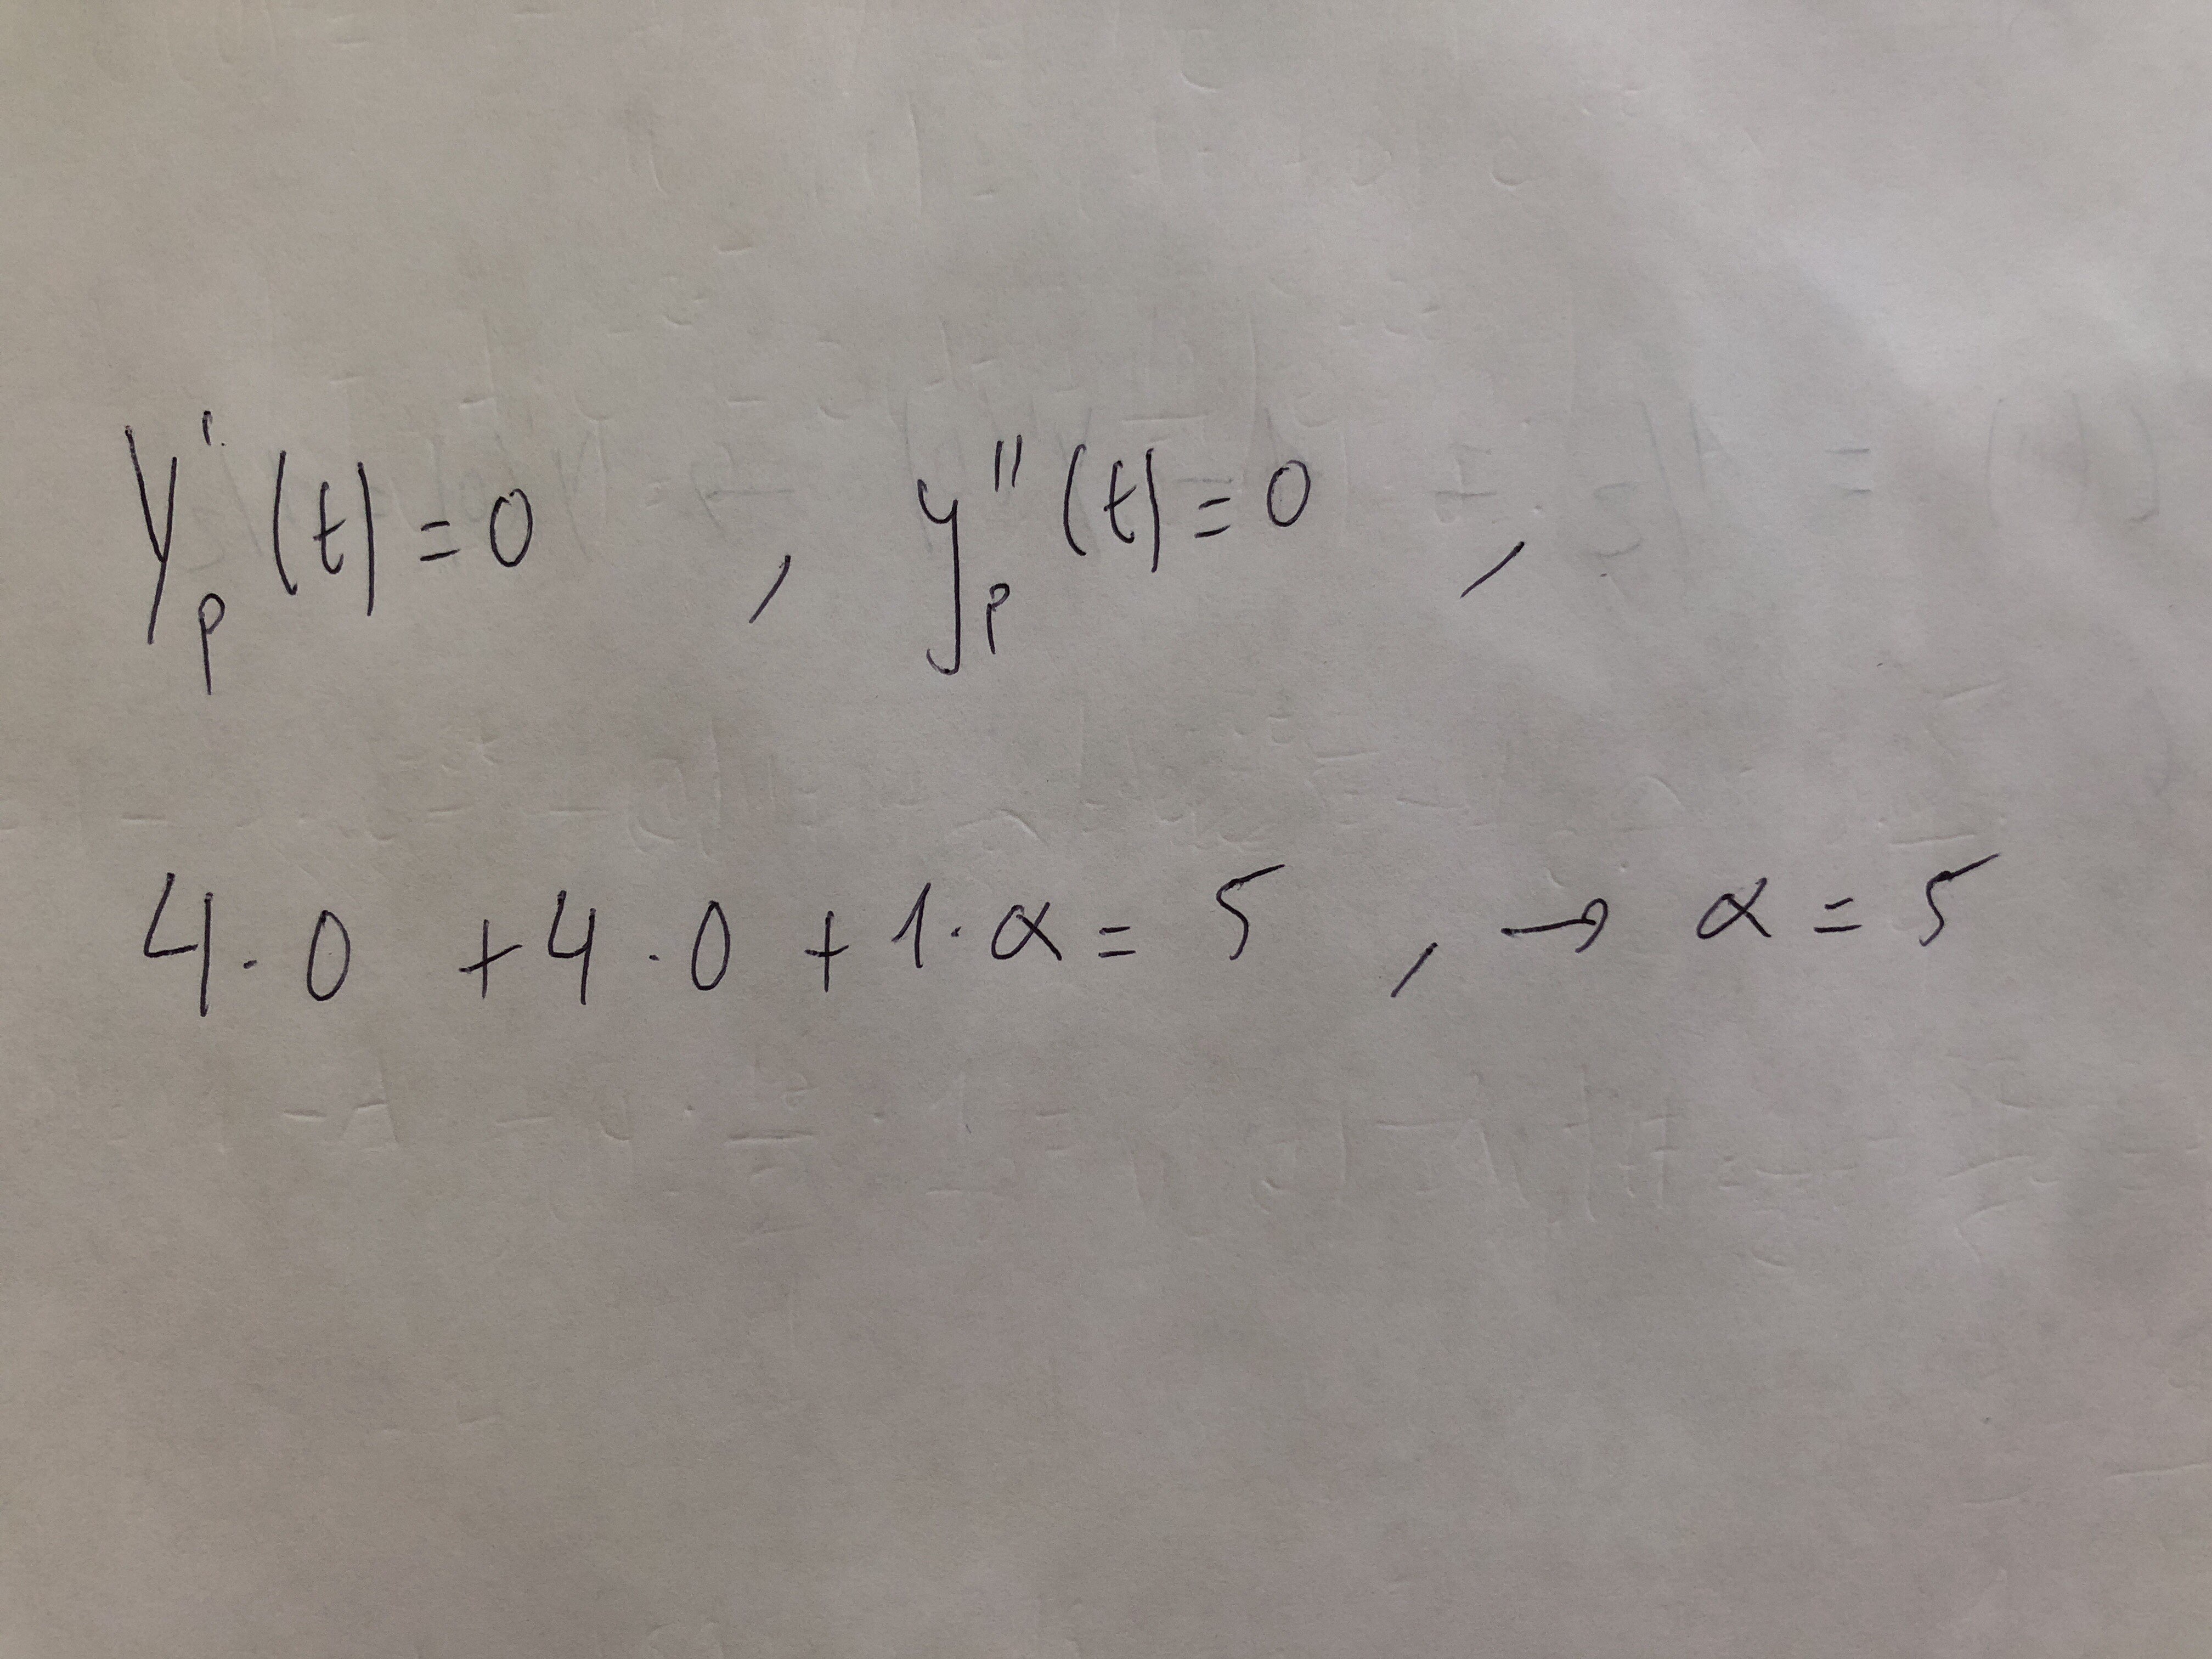 y'ₚ(t)=0 , y''ₚ(t)=0 ,
4·0 +4·0 +1·α= 5 , → α = 5